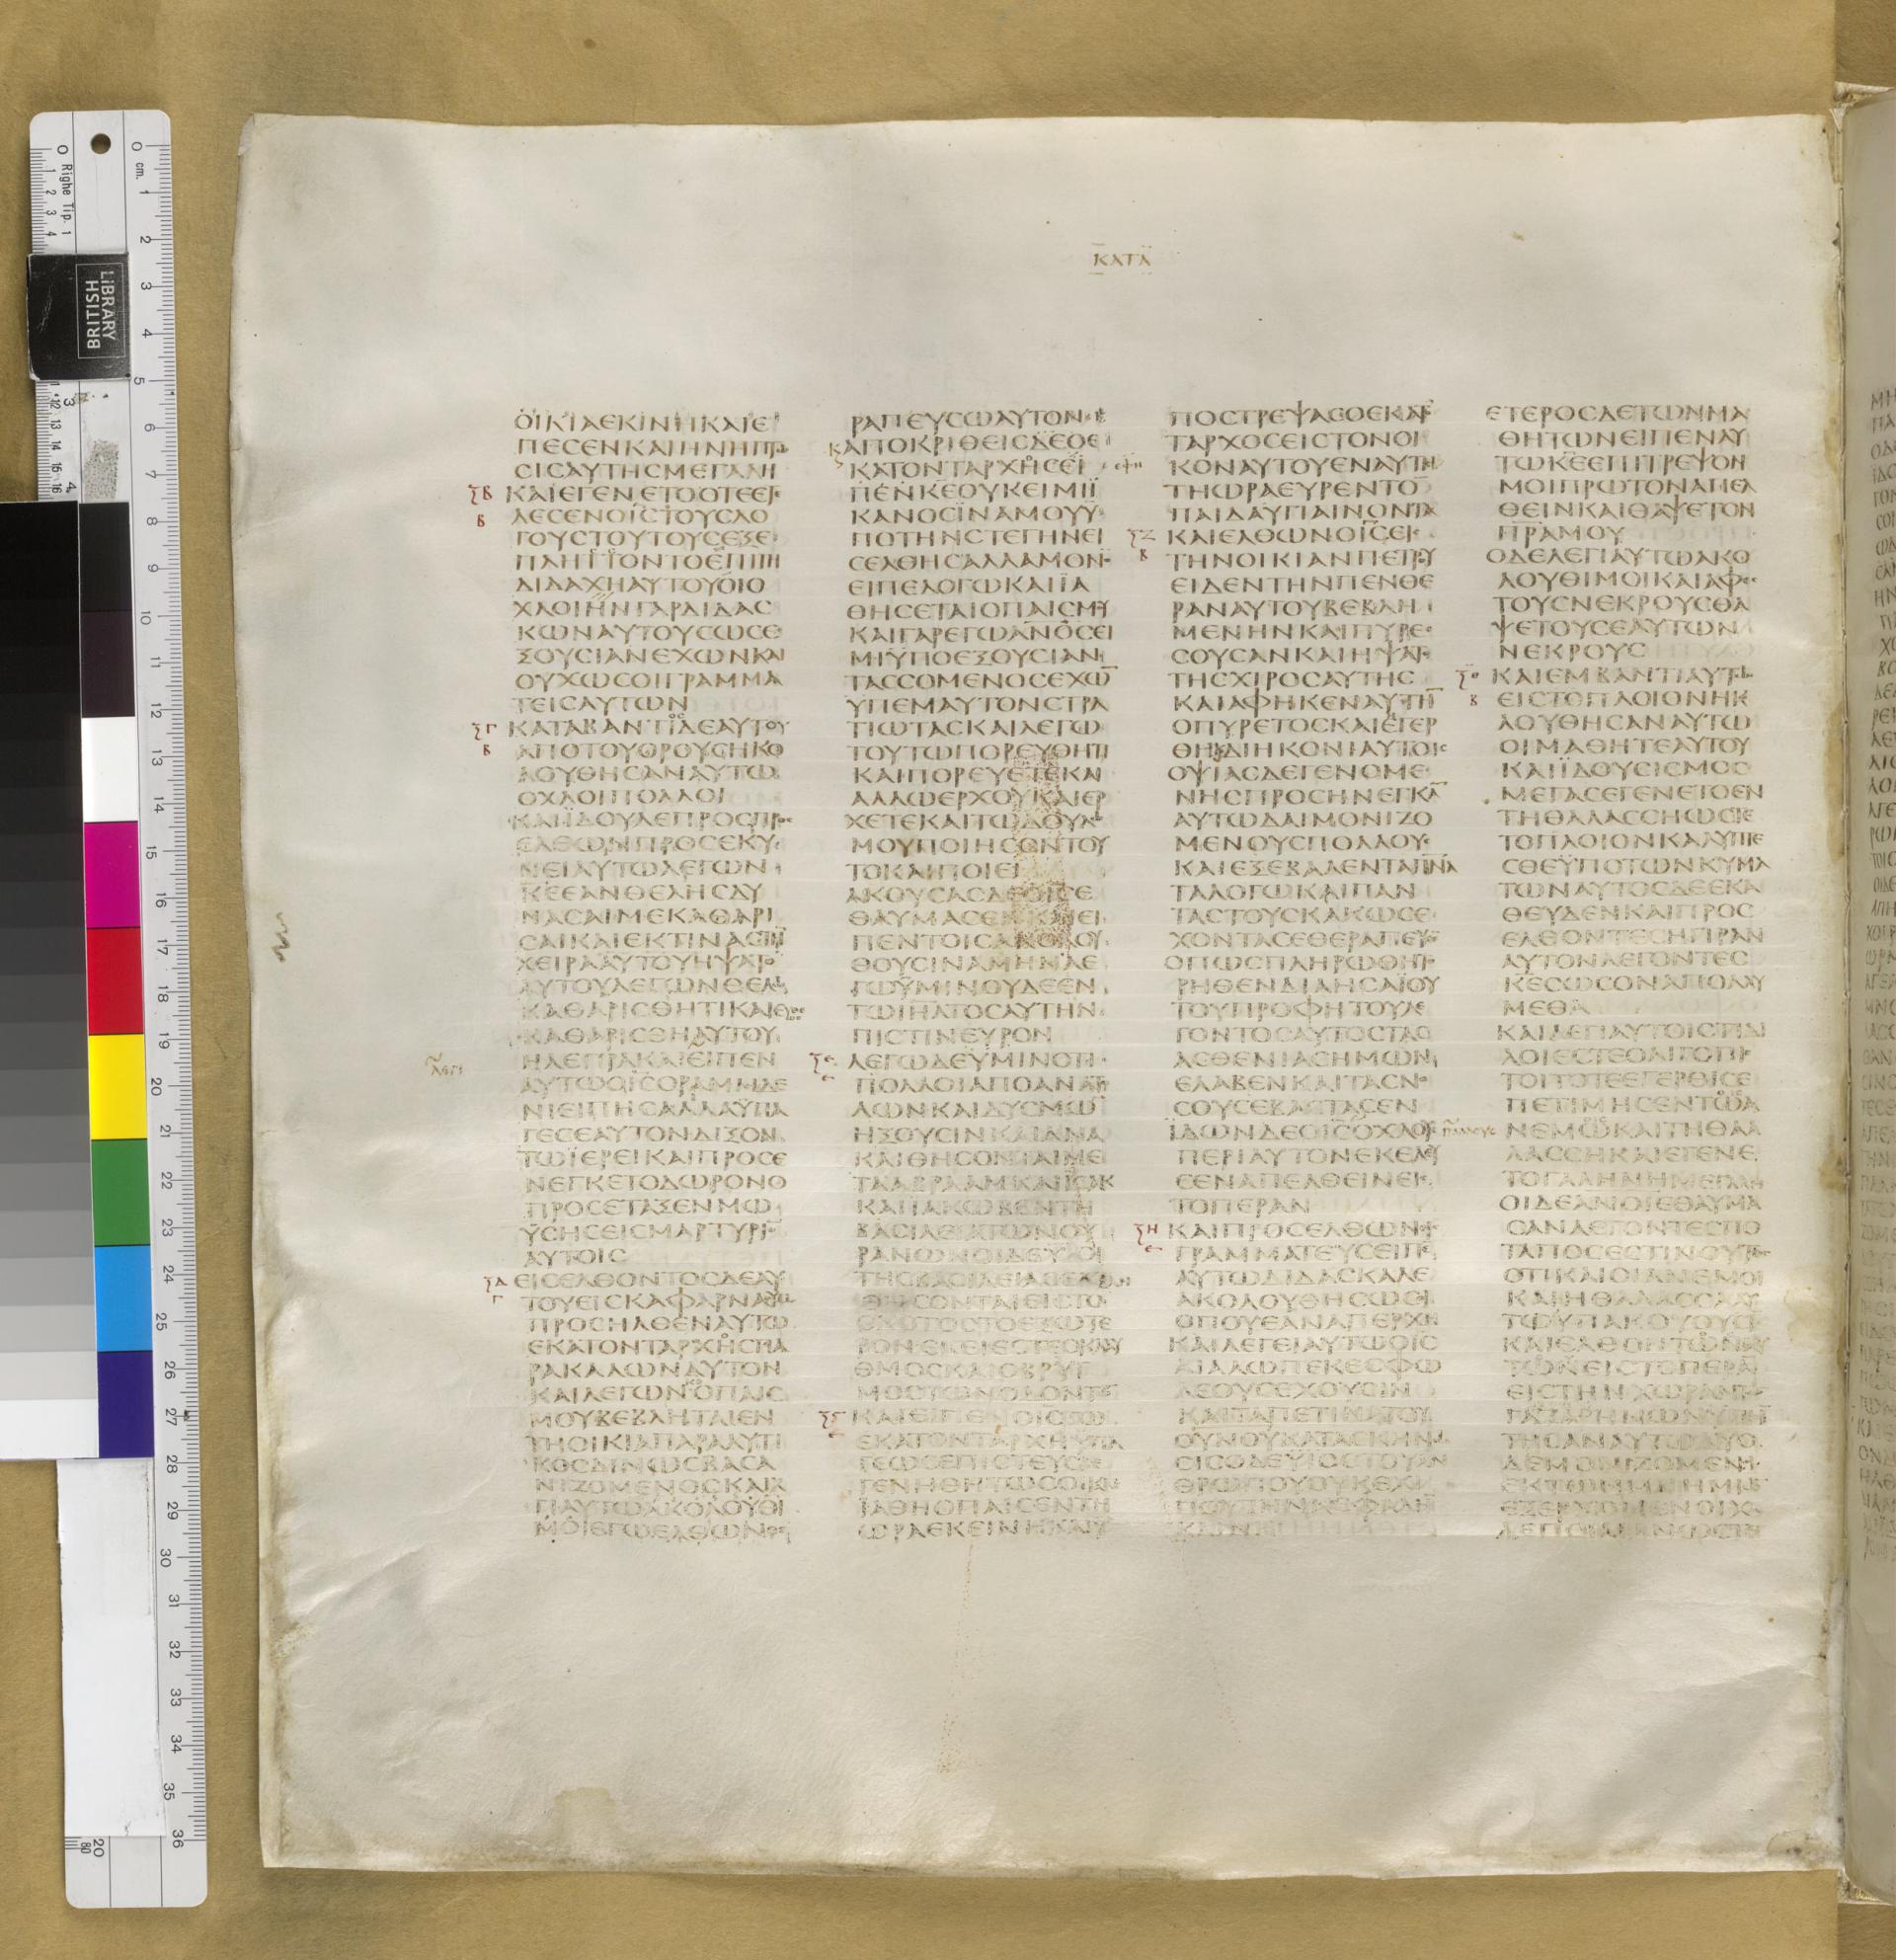 ΚΑΤΑ
ΟΙΚΙΑΕΚΙΝΗΚΑΙΕ
ΠΕΣΕΝΚΑΙΗΝΗΠΤΩ
ϹΙϹΑΥΤΗϹΜΕΓΑΛΗ
ΚΑΙΕΓΕΝΕΤΟΟΤΕΕΤΕ
ΛΕϹΕΝΟΙϹΤΟΥϹΛΟ
ΓΟΥϹΤΟΥΤΟΥϹΕΞΕ
ΠΛΗΤΤΟΝΤΟΕΠΙΤΗ
ΔΙΔΑΧΗΑΥΤΟΥΟΙΟ
ΧΛΟΙΗΝΓΑΡΔΙΔΑϹ
ΚΩΝΑΥΤΟΥϹΩϹΕ
ΞΟΥϹΙΑΝΕΧΩΝΚΑΙ
ΟΥΧΩϹΟΙΓΡΑΜΜΑ
ΤΕΙϹΑΥΤΩΝ
ΚΑΤΑΒΑΝΤΙΔΕΑΥΤΟΥ
ΑΠΟΤΟΥΟΡΟΥϹΗΚΟ
ΛΟΥΘΗϹΑΝΑΥΤΩ
ΟΧΛΟΙΠΟΛΛΟΙ
ΚΑΙΪΔΟΥΛΕΠΡΟϹΠΡΟϹ
ΕΛΘΩΝΠΡΟϹΕΚΥ
ΝΕΙΑΥΤΩΛΕΓΩΝ
ΚΕΕΑΝΘΕΛΗϹΔΥ
ΝΑϹΑΙΜΕΚΑΘΑΡΙ
ϹΑΙΚΑΙΕΚΤΙΝΑϹΤΗ
ΧΕΙΡΑΑΥΤΟΥΗΨΑΤΟ
ΑΥΤΟΥΛΕΓΩΝΘΕΛΩ
ΚΑΘΑΡΙϹΘΗΤΙΚΑΙΕΥΘΕ
ΚΑΘΑΡΙϹΘΗΑΥΤΟΥ
ΗΛΕΠΡΑΚΑΙΕΙΠΕΝ
ΑΥΤΩΟΙϹΟΡΑΜΗΔΕ
ΝΙΕΙΠΗϹΑΛΛΑΫΠΑ
ΓΕϹΕΑΥΤΟΝΔΙΞΟΝ
ΤΩΪΕΡΕΙΚΑΙΠΡΟϹΕ
ΝΕΓΚΕΤΟΔΩΡΟΝΟ
ΠΡΟϹΕΤΑΞΕΝΜΩ
ΫϹΗϹΕΙϹΜΑΡΤΥΡΙ
ΑΥΤΟΙϹ
ΕΙϹΕΛΘΟΝΤΟϹΔΕΑΥ
ΤΟΥΕΙϹΚΑΦΑΡΝΑΟΥΜ
ΠΡΟϹΗΛΘΕΝΑΥΤΩ
ΕΚΑΤΟΝΤΑΡΧΗϹΠΑ
ΡΑΚΑΛΩΝΑΥΤΟΝ
ΚΑΙΛΕΓΩΝΟΠΑΙϹ
ΜΟΥΒΕΒΛΗΤΑΙΕΝ
ΤΗΟΙΚΙΑΠΑΡΑΛΥΤΙ
ΚΟϹΔΙΝΩϹΒΑϹΑ
ΝΙΖΟΜΕΝΟϹΚΑΙΛΕ
ΓΙΑΥΤΩΑΚΟΛΟΥΘΙ
ΜΟΙΕΓΩΕΛΘΩΝΘΕ
ΡΑΠΕΥϹΩΑΥΤΟΝ
ΑΠΟΚΡΙΘΕΙϹΔΕΟΕ
ΚΑΤΟΝΤΑΡΧΗϹΕΙ
ΠΕΝΚΕΟΥΚΕΙΜΙΪ
ΚΑΝΟϹΪΝΑΜΟΥΫ
ΠΟΤΗΝϹΤΕΓΗΝΕΙ
ϹΕΛΘΗϹΑΛΛΑΜΟΝΟ
ΕΙΠΕΛΟΓΩΚΑΙΪΑ
ΘΗϹΕΤΑΙΟΠΑΙϹΜΟΥ
ΚΑΙΓΑΡΕΓΩΑΝΟϹΕΙ
ΜΙΫΠΟΕΞΟΥϹΙΑΝ
ΤΑϹϹΟΜΕΝΟϹΕΧΩ
ΥΠΕΜΑΥΤΟΝϹΤΡΑ
ΤΙΩΤΑϹΚΑΙΛΕΓΩ
ΤΟΥΤΩΠΟΡΕΥΘΗΤΙ
ΚΑΙΠΟΡΕΥΕΤΕΚΑΙ
ΑΛΛΩΕΡΧΟΥΚΑΙΕΡ
ΧΕΤΕΚΑΙΤΩΔΟΥΛΩ
ΜΟΥΠΟΙΗϹΟΝΤΟΥ
ΤΟΚΑΙΠΟΙΕΙ
ΑΚΟΥϹΑϹΔΕΟΙϹΕ
ΘΑΥΜΑϹΕΝΚΑΙΕΙ
ΠΕΝΤΟΙϹΑΚΟΛΟΥ
ΘΟΥϹΙΝΑΜΗΝΛΕ
ΓΩΫΜΙΝΟΥΔΕΕΝ
ΤΩΙΗΛΤΟϹΑΥΤΗΝ
ΠΙϹΤΙΝΕΥΡΟΝ
ΛΕΓΩΔΕΫΜΙΝΟΤΙ
ΠΟΛΛΟΙΑΠΟΑΝΑΤΟ
ΛΩΝΚΑΙΔΥϹΜΩ
ΗΞΟΥϹΙΝΚΑΙΑΝΑ
ΚΛΙΘΗϹΟΝΤΑΙΜΕ
ΤΑΑΒΡΑΑΜΚΑΙΪϹΑΚ
ΚΑΙΙΑΚΩΒΕΝΤΗ
ΒΑϹΙΛΕΙΑΤΩΝΟΥ
ΡΑΝΩΝΟΙΔΕΥΙΟΙ
ΤΗϹΒΑϹΙΛΕΙΑϹΕΞΕΛΕΥ
ϹΟΝΤΑΙΕΙϹΤΟ
ϹΚΟΤΟϹΤΟΕΞΩΤΕ
ΡΟΝΕΚΕΙΕϹΤΕΟΚΛΑΥ
ΘΜΟϹΚΑΙΟΒΡΥΓ
ΜΟϹΤΩΝΟΔΟΝΤΩ
ΚΑΙΕΙΠΕΝΟΙϹΤΩ
ΕΚΑΤΟΝΤΑΡΧΗΥΠΑ
ΓΕΩϹΕΠΙϹΤΕΥϹΑϹ
ΓΕΝΗΘΗΤΩϹΟΙΚΑΙ
ΪΑΘΗΟΠΑΙϹΕΝΤΗ
ΩΡΑΕΚΕΙΝΗΚΑΙΥ
ΠΟϹΤΡΕΨΑϹΟΕΚΑ
ΤΑΡΧΟϹΕΙϹΤΟΝΟΙ
ΚΟΝΑΥΤΟΥΕΝΑΥΤΗ
ΤΗΩΡΑΕΥΡΕΝΤΟ
ΠΑΙΔΑΥΓΙΑΙΝΟΝΤΑ
ΚΑΙΕΛΘΩΝΟΙϹΕΙϹ
ΤΗΝΟΙΚΙΑΝΠΕΤΡΟΥ
ΕΙΔΕΝΤΗΝΠΕΝΘΕ
ΡΑΝΑΥΤΟΥΒΕΒΛΗ
ΜΕΝΗΝΚΑΙΠΥΡΕϹ
ϹΟΥϹΑΝΚΑΙΗΨΑΤΟ
ΤΗϹΧΙΡΟϹΑΥΤΗϹ
ΚΑΙΑΦΗΚΕΝΑΥΤΗ
ΟΠΥΡΕΤΟϹΚΑΙΕΓΕΡ
ΘΗΚΑΙΔΙΗΚΟΝΙΑΥΤΟΙϹ
ΟΨΙΑϹΔΕΓΕΝΟΜΕ
ΝΗϹΠΡΟϹΗΝΕΓΚΑ
ΑΥΤΩΔΑΙΜΟΝΙΖΟ
ΜΕΝΟΥϹΠΟΛΛΟΥϹ
ΚΑΙΕΞΕΒΑΛΕΝΤΑΠΝΑ
ΤΑΛΟΓΩΚΑΙΠΑΝ
ΤΑϹΤΟΥϹΚΑΚΩϹΕ
ΧΟΝΤΑϹΕΘΕΡΑΠΕΥϹΕ
ΟΠΩϹΠΛΗΡΩΘΗΤΟ
ΡΗΘΕΝΔΙΑΗϹΑΪΟΥ
ΤΟΥΠΡΟΦΗΤΟΥΛΕ
ΓΟΝΤΟϹΑΥΤΟϹΤΑϹ
ΑϹΘΕΝΙΑϹΗΜΩΝ
ΕΛΑΒΕΝΚΑΙΤΑϹΝΟ
ϹΟΥϹΕΒΑϹΤΑϹΕΝ
ΪΔΩΝΔΕΟΙϹΟΧΛΟΥϹ
ΠΕΡΙΑΥΤΟΝΕΚΕΛΕΥ
ϹΕΝΑΠΕΛΘΕΙΝΕΙϹ
ΤΟΠΕΡΑΝ
ΚΑΙΠΡΟϹΕΛΘΩΝΕΙϹ
ΓΡΑΜΜΑΤΕΥϹΕΙΠΕ
ΑΥΤΩΔΙΔΑϹΚΑΛΕ
ΑΚΟΛΟΥΘΗϹΩϹΟΙ
ΟΠΟΥΕΑΝΑΠΕΡΧΗ
ΚΑΙΛΕΓΕΙΑΥΤΩΟΙϹ
ΑΙΑΛΩΠΕΚΕϹΦΩ
ΛΕΟΥϹΕΧΟΥϹΙΝ
ΚΑΙΤΑΠΕΤΙΝΑΤΟΥ
ΟΥΝΟΥΚΑΤΑϹΚΗΝΩ
ϹΙϹΟΔΕΥΙΟϹΤΟΥΑΝ
ΘΡΩΠΟΥΟΥΚΕΧΙ
ΠΟΥΤΗΝΚΕΦΑΛΗ
ΕΤΕΡΟϹΔΕΤΩΝΜΑ
ΘΗΤΩΝΕΙΠΕΝΑΥ
ΤΩΚΕΕΠΙΤΡΕΨΟΝ
ΜΟΙΠΡΩΤΟΝΑΠΕΛ
ΘΕΙΝΚΑΙΘΑΨΕΤΟΝ
ΠΡΑΜΟΥ
ΟΔΕΛΕΓΙΑΥΤΩΑΚΟ
ΛΟΥΘΙΜΟΙΚΑΙΑΦΕϹ
ΤΟΥϹΝΕΚΡΟΥϹΘΑ
ΨΕΤΟΥϹΕΑΥΤΩΝ
ΝΕΚΡΟΥϹ
ΚΑΙΕΜΒΑΝΤΙΑΥΤΩ
ΕΙϹΤΟΠΛΟΙΟΝΗΚ
ΛΟΥΘΗϹΑΝΑΥΤΩ
ΟΙΜΑΘΗΤΕΑΥΤΟΥ
ΚΑΙΪΔΟΥϹΙϹΜΟϹ
ΜΕΓΑϹΕΓΕΝΕΤΟΕΝ
ΤΗΘΑΛΑϹϹΗΩϹΤΕ
ΤΟΠΛΟΙΟΝΚΑΛΥΠΤΕ
ϹΘΕΫΠΟΤΩΝΚΥΜΑ
ΤΩΝΑΥΤΟϹΔΕΕΚΑ
ΘΕΥΔΕΝΚΑΙΠΡΟϹ
ΕΛΘΟΝΤΕϹΗΓΙΡΑΝ
ΑΥΤΟΝΛΕΓΟΝΤΕϹ
ΚΕϹΩϹΟΝΑΠΟΛΛΥ
ΜΕΘΑ
ΚΑΙΛΕΓΙΑΥΤΟΙϹΤΙΔΙ
ΛΟΙΕϹΤΕΟΛΙΓΟΠΙ
ϹΤΟΙΤΟΤΕΕΓΕΡΘΙϹΕ
ΠΕΤΙΜΗϹΕΝΤΩΑ
ΝΕΜΩΚΑΙΤΗΘΑΛ
ΛΑϹϹΗΚΑΙΕΓΕΝΕ
ΤΟΓΑΛΗΝΗΜΕΓΑΛΗ
ΟΙΔΕΑΝΟΙΕΘΑΥΜΑ
ϹΑΝΛΕΓΟΝΤΕϹΠΟ
ΤΑΠΟϹΕϹΤΙΝΟΥΤΟϹ
ΟΤΙΚΑΙΟΙΑΝΕΜΟΙ
ΚΑΙΗΘΑΛΑϹϹΑΑΥ
ΤΩΫΠΑΚΟΥΟΥϹΙ
ΚΑΙΕΛΘΟΝΤΩΝΑΥ
ΤΩΝΕΙϹΤΟΠΕΡΑ
ΕΙϹΤΗΝΧΩΡΑΝΤΩ
ΓΑΖΑΡΗΝΩΝΥΠΗ
ΤΗϹΑΝΑΥΤΩΔΥΟ
ΔΕΜΟΝΙΖΟΜΕΝΟΙ
ΕΚΤΩΝΜΝΗΜΙΩ
ΕΞΕΡΧΟΜΕΝΟΙΧΑ
BRITISH LIBRARY